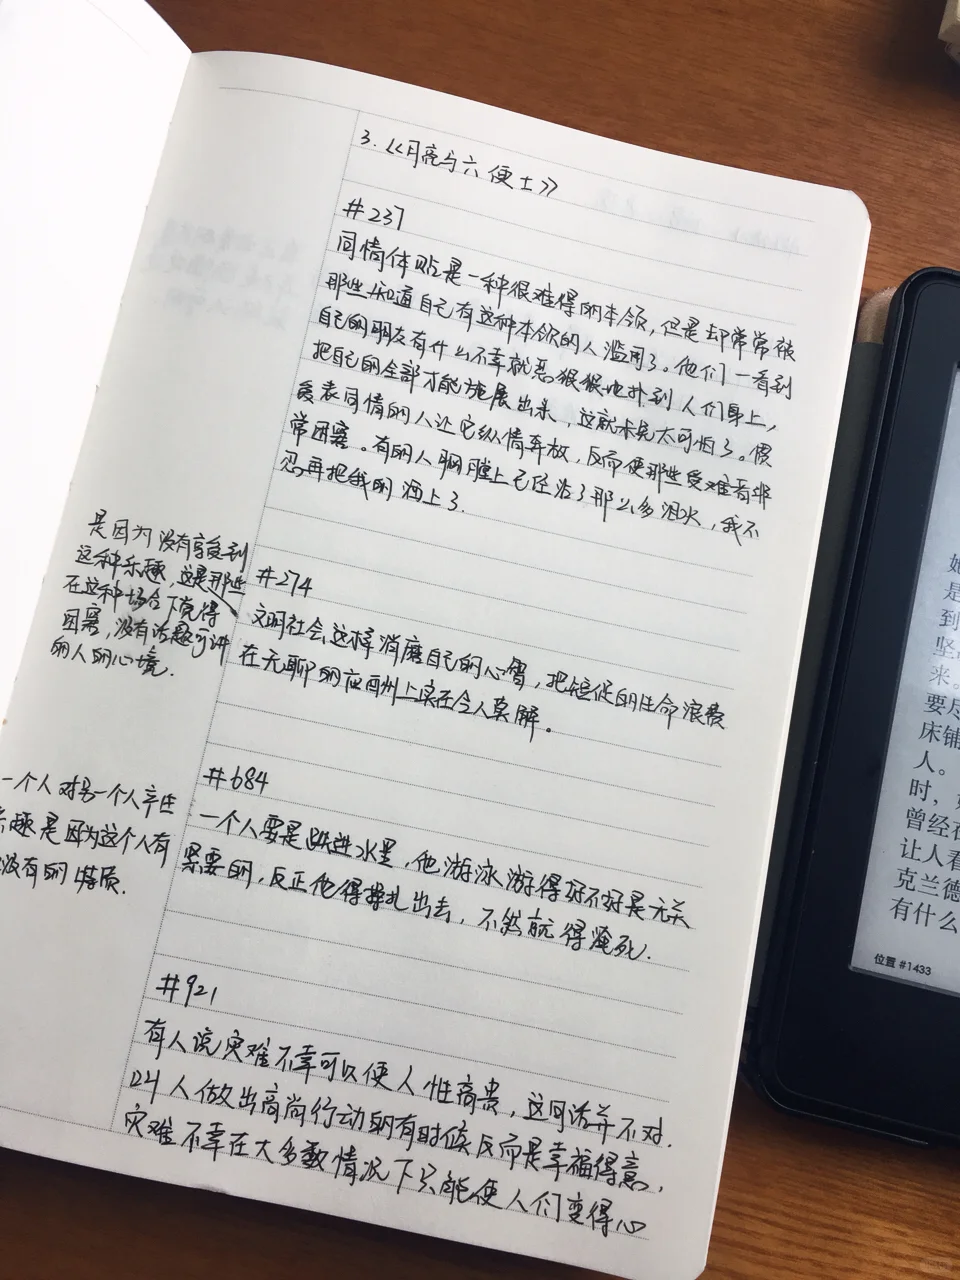 3.《月亮与六便士》
#237
同情体贴是一种很难得的本领,但是却常常被
那些知道自己有这种本领的人滥用了。他们一看到
自己的朋友有什么不幸就恶狠狠地扑到人们身上,
把自己的全部才能施展出来,这就未免太可怕了。
表同情的人让它纵情奔放,反而使那些受难者非
常困窘。有的人胸膛上已经沾了那么多泪水,我不
忍再把我的洒上了.
是因为没有享受到
这种乐趣,这是那些
在这种场合下觉得
困窘,没有话题可讲
的人的心境.
#274
文明社会这样消磨自己的心智,把短促的生命浪费
在无聊的应酬上实在令人莫解。
一个人对另一个人产生
乐趣是因为这个人有
没有的特质.
#684
一个人要是跌进水里,他游泳游得好不好是无关
紧要的,反正他得挣扎出去,不然就得淹死.
#921
有人说灾难不幸可以使人性高贵,这句话并不对.
叫人做出高尚行动的有时候反而是幸福得意,
灾难不幸在大多数情况下只能使人们变得心
她
是
到
坚
来。
要尽
床铺
人。
时,
曾经在
让人看
克兰德
有什么
位置 #1433